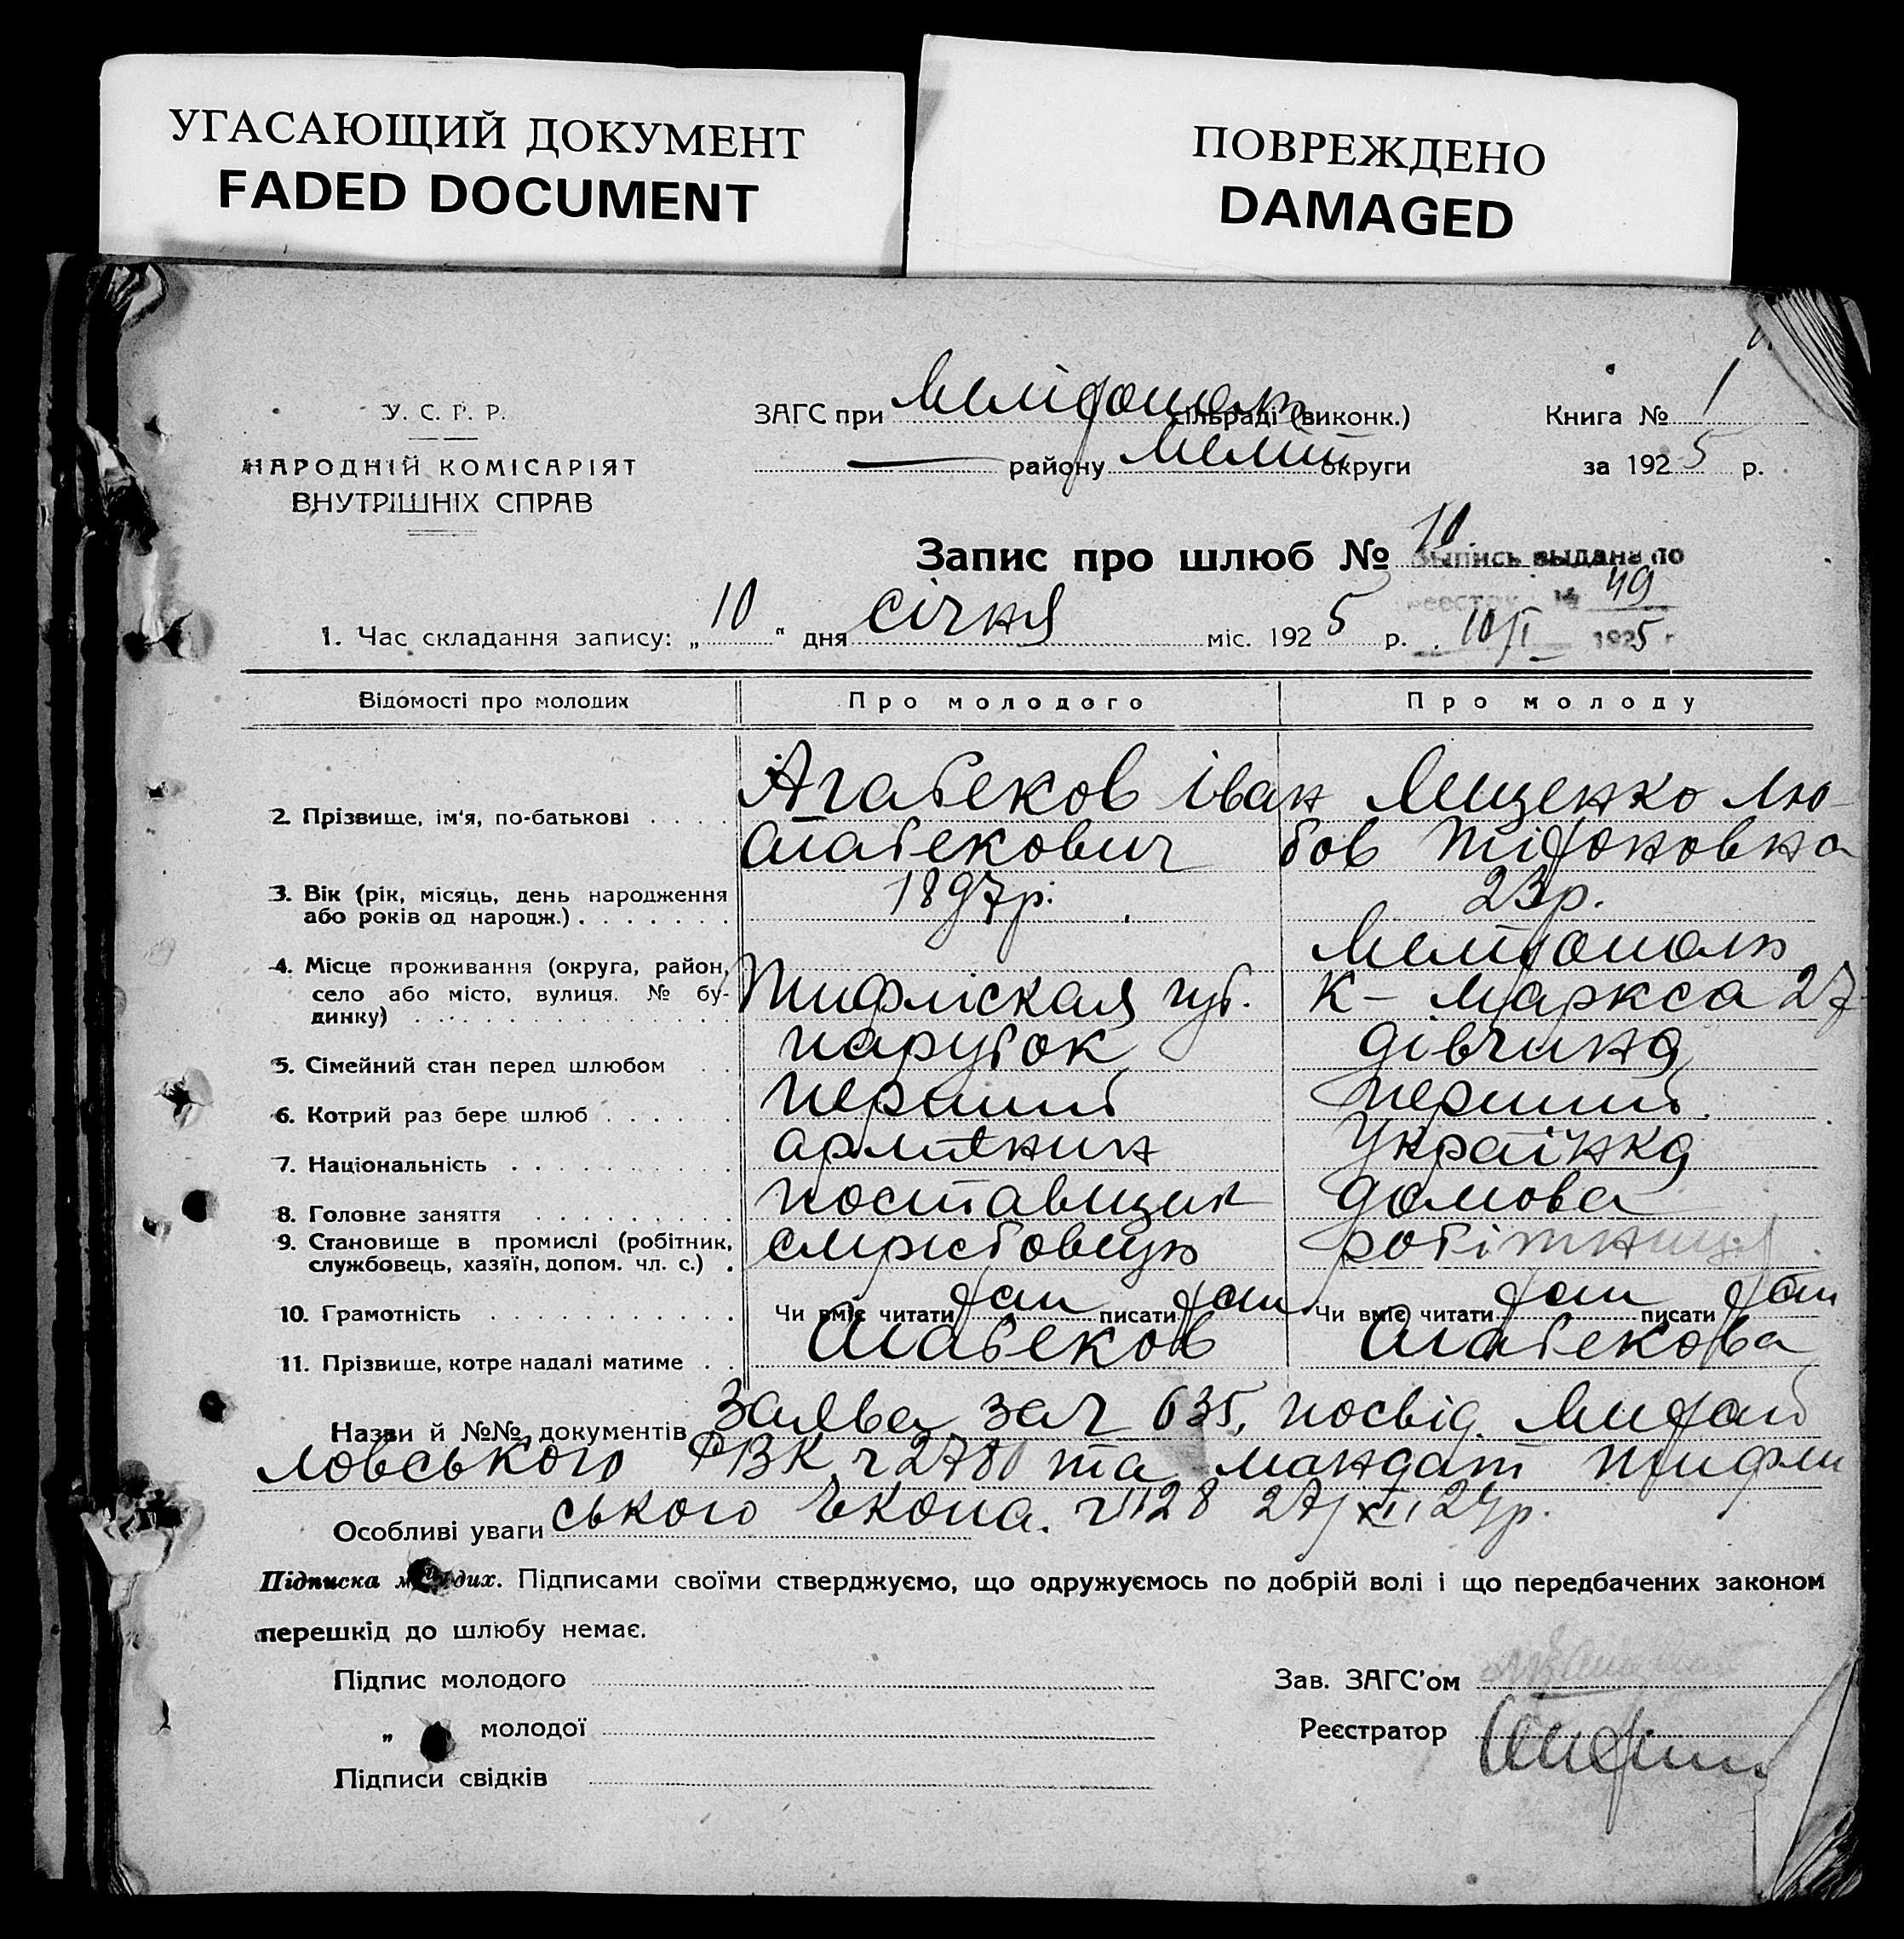 УГАСАЮЩИЙ ДОКУМЕНТ
FADED DOCUMENT
ПОВРЕЖДЕНО
DAMAGED
У. С. Р. Р.
НАРОДНІЙ КОМІСАРІЯТ
ВНУТРІШНІХ СПРАВ
ЗАГС при Мелітополь сільраді (виконк.)
— району Меліт округи
Книга № 1
за 1925 р.
Запис про шлюб № 10
Выпись выдана по
реестру № 49
10/I 1925 г
1. Час складання запису: „10“ дня січня міс. 1925 р.
Відомості про молодих Про молодого Про молоду
2. Прізвище, ім'я, по-батькові
Агабеков Іван
Агабекович
Мищенко Лю-
бов Тіфоновна
3. Вік (рік, місяць, день народження
або років од народж.)
1897р.
23р.
4. Місце проживання (округа, район,
село або місто, вулиця. № бу-
динку)
Тифліская губ.
Мелітополь
К- Маркса 27
5. Сімейний стан перед шлюбом парубок дівчина
6. Котрий раз бере шлюб перший перший
7. Національність армянин Українка
8. Головне заняття поставщик домова
9. Становище в промислі (робітник,
службовець, хазяїн, допом. чл. с.)
робітниця
10. Грамотність Чи вміє читати писати Чи вміє читати писати
11. Прізвище, котре надалі матиме Агабеков Агабекова
Назви й №№ документів Заява зач 635, посвід. Михай
ловського РВК ч 2780 та мандат Тифлі
Особливі уваги ського 27/XII 24р.
Підписка молодих. Підписами своїми стверджуємо, що одружуємось по добрій волі і що передбачених законом
перешкід до шлюбу немає.
Підпис молодого
„ молодої
Підписи свідків
Зав. ЗАГС'ом
Реєстратор